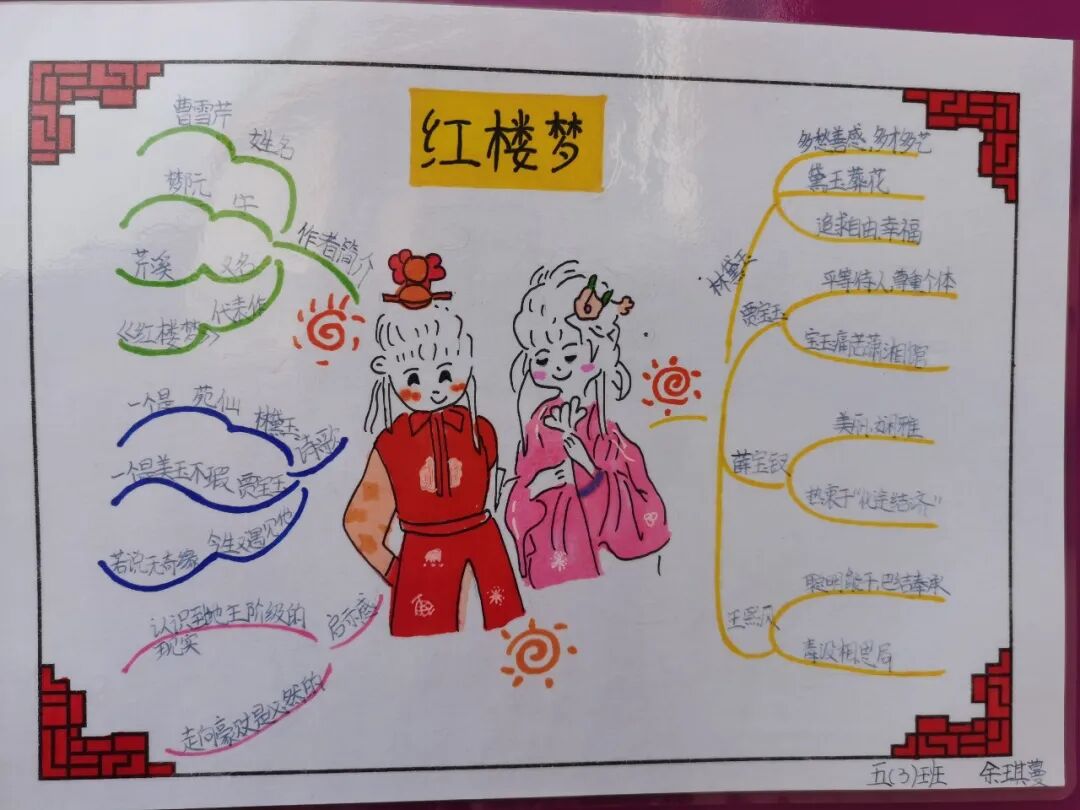 红楼梦
曹雪芹
姓名
梦阮
字
芹溪
又名
《红楼梦》
代表作
作者简介
一个是 苑仙
林黛玉
一个是美玉不瑕
贾宝玉
若说无奇缘
今生又遇见他
诗歌
认识到地主阶级的
现实
走向衰败是必然的
启示感
林黛玉
多愁善感,多才多艺
黛玉葬花
追求自由,幸福
贾宝玉
平等待人,尊重个体
宝玉痛苦潇湘馆
薛宝钗
美丽,娴雅
热衷于“仕途经济”
王熙凤
聪明能干,巴结奉承
毒设相思局
五(3)班 余琪蔓